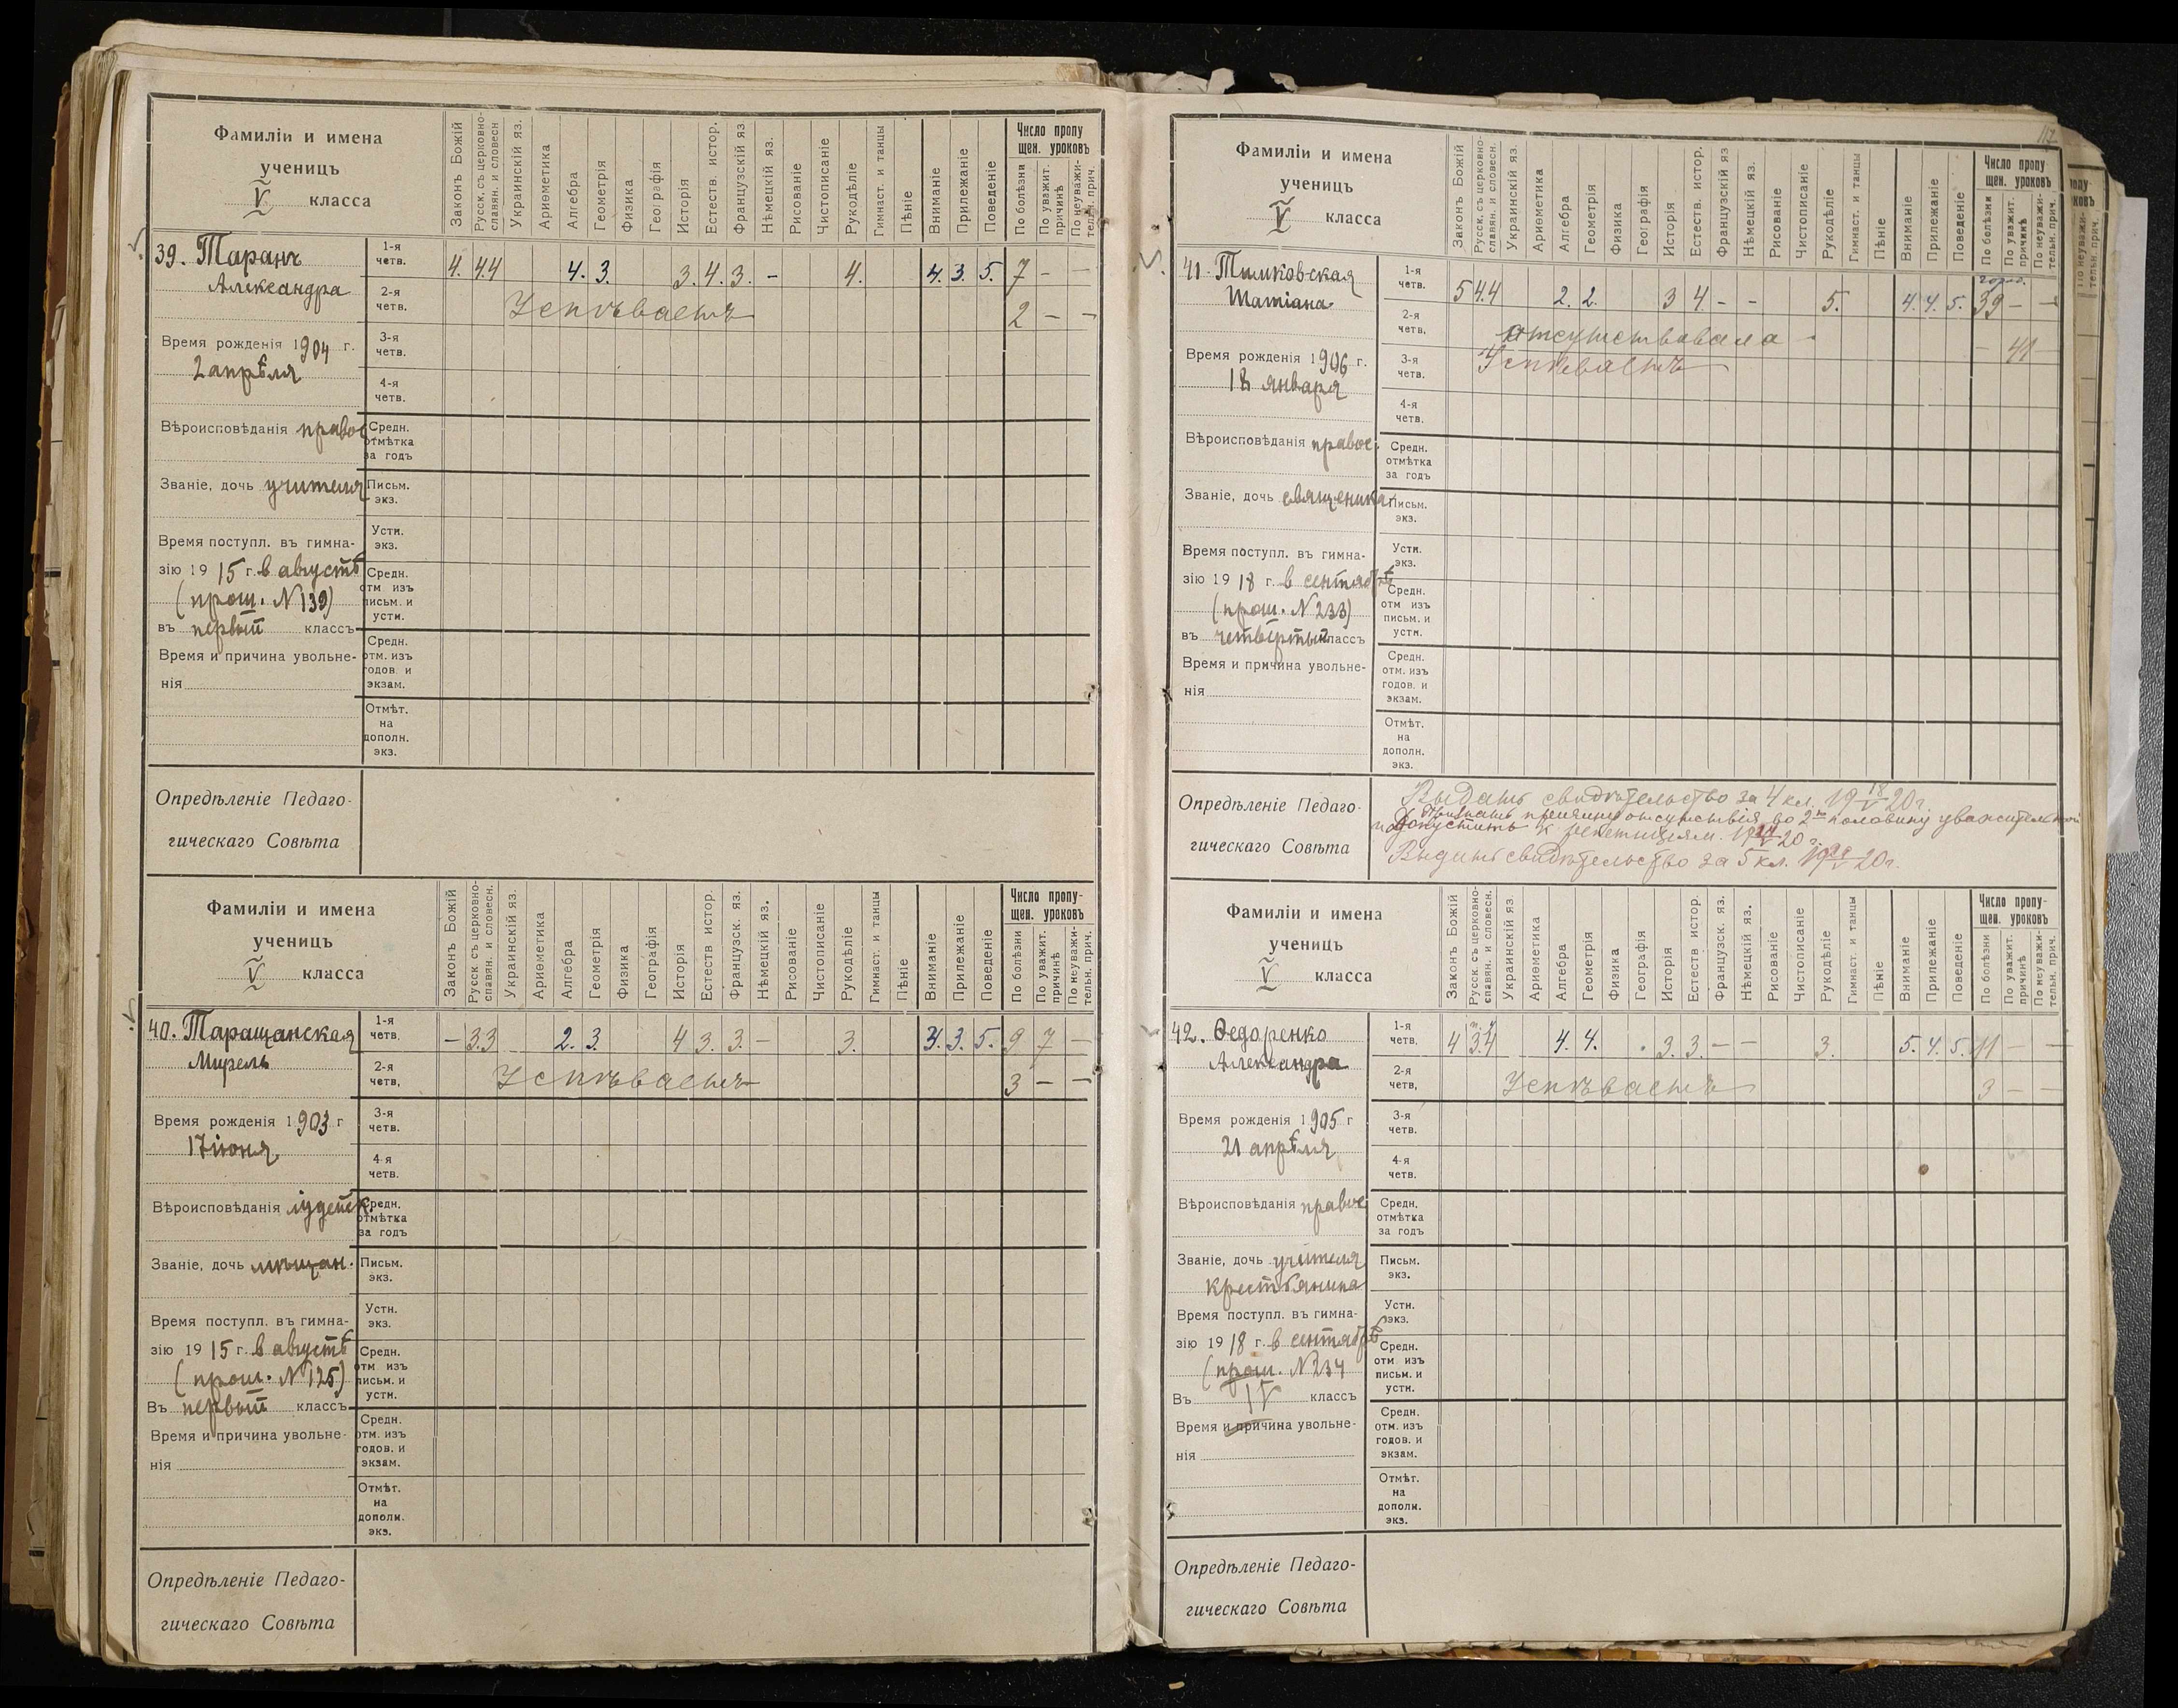 Фамиліи и имена
ученицъ
V класса
Законъ Божій
Русск. съ церковно-
славян. и словесн
Украинскій яз.
Ариѳметика
Алгебра
Геометрія
Физика
Географія
Исторія
Естеств. истор.
Французскій яз
Нѣмецкій яз.
Рисованіе
Чистописаніе
Рукодѣліе
Гимнаст. и танцы
Пѣніе
Вниманіе
Прилежаніе
Поведеніе
Число пропу
щен. уроковъ
По болѣзни
По уважит.
причинѣ
По неуважи-
тельн. прич.
39. Таранъ
Александра
1-я
четв.
4. 4.4 4. 3. 3. 4. 3. - 4. 4. 3. 5. 7 - -
2-я
четв.
Успѣваетъ 2 - -
Время рожденія 1904 г.
2 апрѣля
3-я
четв.
4-я
четв.
Вѣроисповѣданія правос
Средн.
отмѣтка
за годъ
Званіе, дочь учителя
Письм.
экз.
Время поступл. въ гимна-
зію 1915 г. в августѣ
(прош. N 139)
въ первый классъ
Устн.
экз.
Средн.
отм изъ
письм. и
устн.
Время и причина увольне-
нія
Средн.
отм. изъ
годов. и
экзам.
Отмѣт.
на
дополн.
экз.
Опредѣленіе Педаго-
гическаго Совѣта
Фамиліи и имена
ученицъ
V класса
Законъ Божій
Русск. съ церковно-
славян. и словесн.
Украинскій яз.
Ариѳметика
Алгебра
Геометрія
Физика
Географія
Исторія
Естеств истор.
Французск. яз.
Нѣмецкій яз.
Рисованіе
Чистописаніе
Рукодѣліе
Гимнаст. и танцы
Пѣніе
Вниманіе
Прилежаніе
Поведеніе
Число пропу-
щен. уроковъ
По болѣзни
По уважит.
причинѣ
По неуважи-
тельн. прич.
40. Таращанская
Мирель
1-я
четв.
- 3.3 2. 3. 4 3. 3. - 3. 3. 3. 5. 9 7 -
2-я
четв,
Успѣваетъ 3 - -
Время рожденія 1903 г
17 іюня
3-я
четв.
4-я
четв.
Вѣроисповѣданія іудейск.
Средн.
отмѣтка
за годъ
Званіе, дочь мѣщан.
Письм.
экз.
Время поступл. въ гимна-
зію 1915 г. в августѣ
(прош. N 125)
Въ первый классъ
Устн.
экз.
Средн.
отм изъ
письм. и
устн.
Время и причина увольне-
нія
Средн.
отм. изъ
годов. и
экзам.
Отмѣт.
на
дополн.
экз.
Опредѣленіе Педаго-
гическаго Совѣта
Фамиліи и имена
ученицъ
V класса
Законъ Божій
Русск. съ церковно-
славян. и словесн.
Украинскій яз.
Ариѳметика
Алгебра
Геометрія
Физика
Географія
Исторія
Естеств. истор.
Французскій яз
Нѣмецкій яз.
Рисованіе
Чистописаніе
Рукодѣліе
Гимнаст. и танцы
Пѣніе
Вниманіе
Прилежаніе
Поведеніе
Число пропу
щен. уроковъ
По болѣзни
По уважит.
причинѣ
По неуважи-
тельн. прич.
41. Тимковская
Татіана
1-я
четв.
5 4.4 2. 2. 3 4 - - 5. 4. 4. 5. 39 - -
2-я
четв,
отсутствовала - 41 -
Время рожденія 1906 г.
18 января
3-я
четв.
Успѣваетъ
4-я
четв.
Вѣроисповѣданія правос.
Средн.
отмѣтка
за годъ
Званіе, дочь священика
Письм.
экз.
Время поступл. въ гимна-
зію 1918 г. в сентябрѣ
(прош. N 233)
въ четвёртый классъ
Устн.
экз.
Средн.
отм изъ
письм. и
устн.
Время и причина увольне-
нія
Средн.
отм. изъ
годов. и
экзам.
Отмѣт.
на
дополн.
экз.
Опредѣленіе Педаго-
гическаго Совѣта
Выдать свидѣтельство за 4 кл. 19 18/V 20 г.
Признать причины отсутствія во 2-ю половину уважительной
допустить к репетиціям.
Выдать свидѣтельство за 5 кл.
Фамиліи и имена
ученицъ
V класса
Законъ Божій
Русск. съ церковно-
славян. и словесн.
Украинскій яз.
Ариѳметика
Алгебра
Геометрія
Физика
Географія
Исторія
Естеств истор.
Французск. яз.
Нѣмецкій яз.
Рисованіе
Чистописаніе
Рукодѣліе
Гимнаст. и танцы
Пѣніе
Вниманіе
Прилежаніе
Поведеніе
Число пропу-
щен. уроковъ
По болѣзни
По уважит.
причинѣ
По неуважи-
тельн. прич.
42. Ѳедоренко
Александра
1-я
четв.
4 3.4 4. 4. 3. 3. - - 3. 5. 4. 5. 11 - -
2-я
четв,
Успѣваетъ 3 - -
Время рожденія 1905 г
21 апрѣля
3-я
четв.
4-я
четв.
Вѣроисповѣданія правос
Средн.
отмѣтка
за годъ
Званіе, дочь учителя
крестьянина
Письм.
экз.
Время поступл. въ гимна-
зію 1918 г. в сентябрѣ
(прош. N 234
Въ IV классъ
Устн.
экз.
Средн.
отм изъ
письм. и
устн.
Время и причина увольне-
нія
Средн.
отм. изъ
годов. и
экзам.
Отмѣт.
на
дополн.
экз.
Опредѣленіе Педаго-
гическаго Совѣта